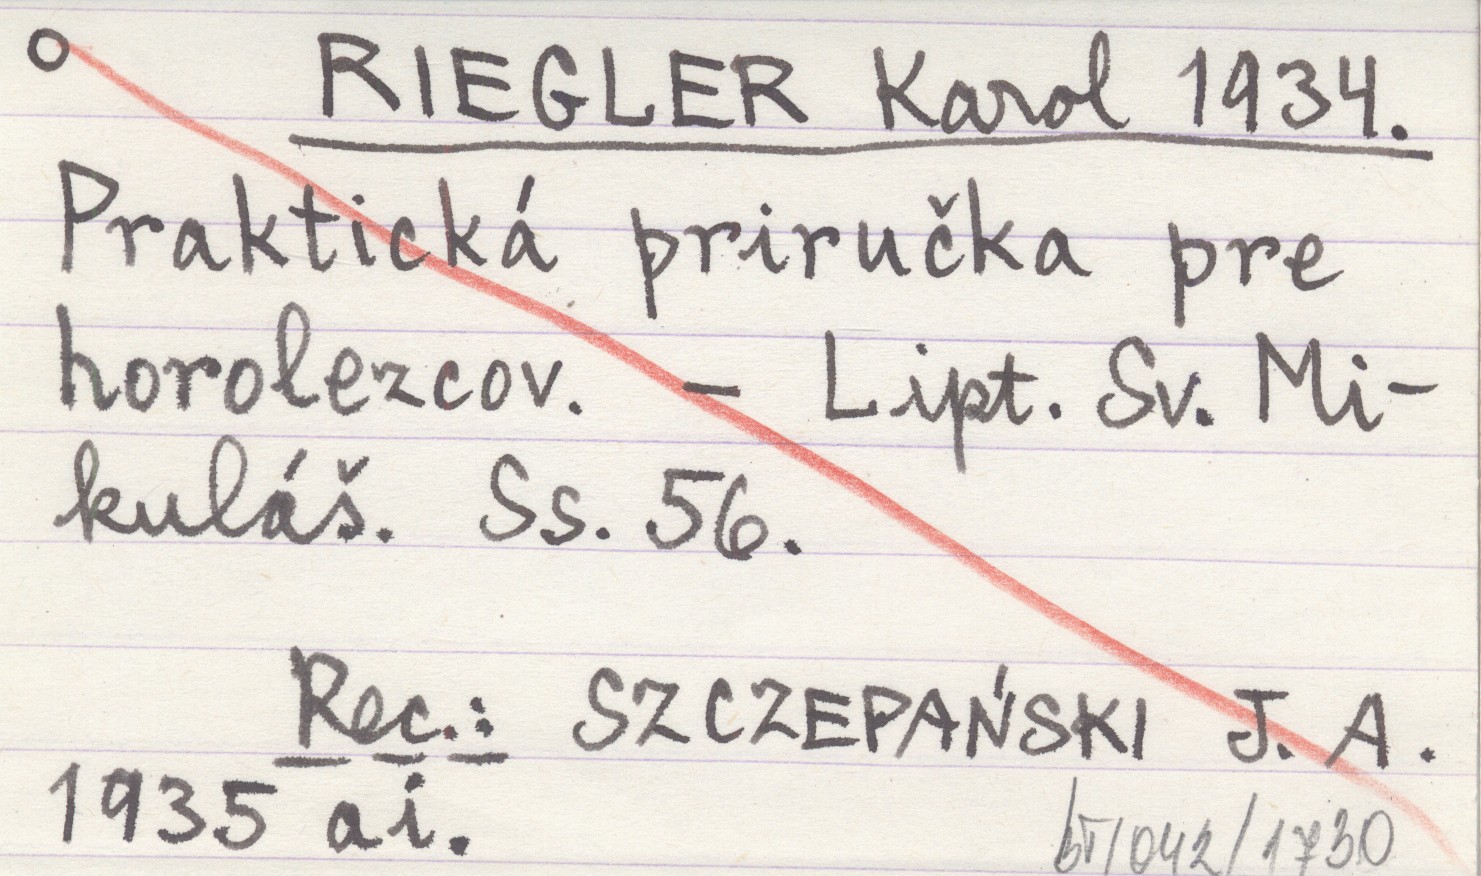 RIEGLER Karol 1934.
Praktická priručka pre
horolezcov. – Lipt. Sv. Mi-
kuláš. Ss. 56.
Rec.: SZCZEPAŃSKI J. A.
1935 ai.
/042/1730